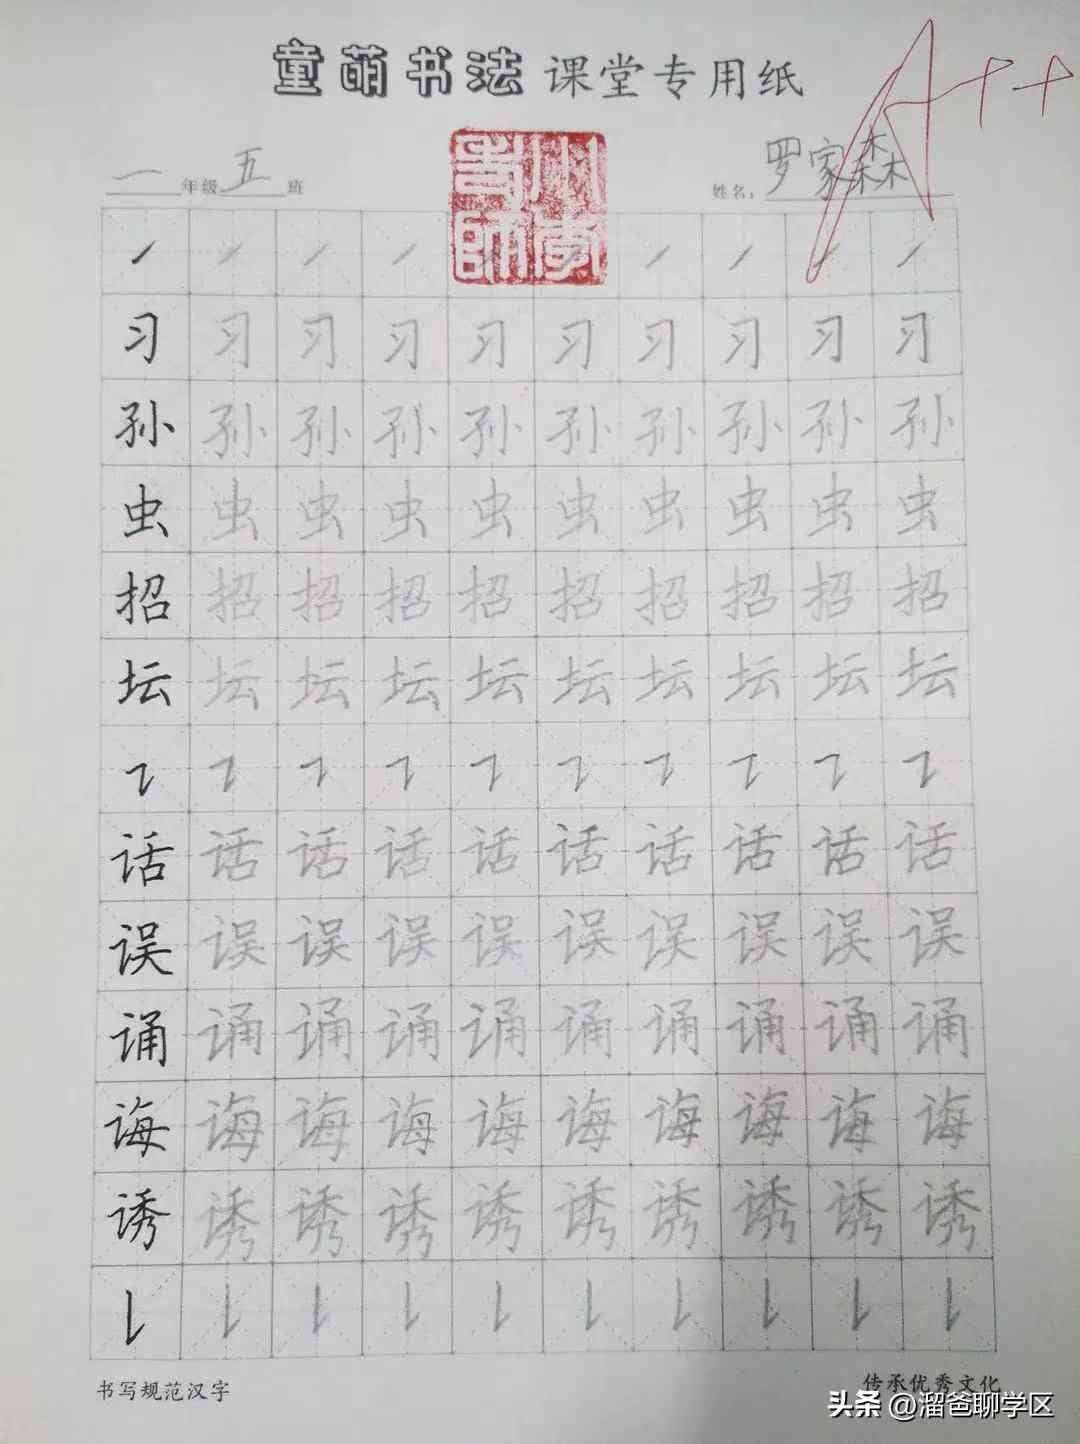 童萌书法 课堂专用纸
A++
一年级 五班 姓名：罗家森
㇀ ㇀ ㇀ ㇀ ㇀ ㇀ ㇀ ㇀ ㇀ ㇀
习 习 习 习 习 习 习 习 习 习
孙 孙 孙 孙 孙 孙 孙 孙 孙 孙
虫 虫 虫 虫 虫 虫 虫 虫 虫 虫
招 招 招 招 招 招 招 招 招 招
坛 坛 坛 坛 坛 坛 坛 坛 坛 坛
㇊ ㇊ ㇊ ㇊ ㇊ ㇊ ㇊ ㇊ ㇊ ㇊
话 话 话 话 话 话 话 话 话 话
误 误 误 误 误 误 误 误 误 误
诵 诵 诵 诵 诵 诵 诵 诵 诵 诵
诲 诲 诲 诲 诲 诲 诲 诲 诲 诲
诱 诱 诱 诱 诱 诱 诱 诱 诱 诱
㇙ ㇙ ㇙ ㇙ ㇙ ㇙ ㇙ ㇙ ㇙ ㇙
书写规范汉字 传承优秀文化
头条 @溜爸聊学区